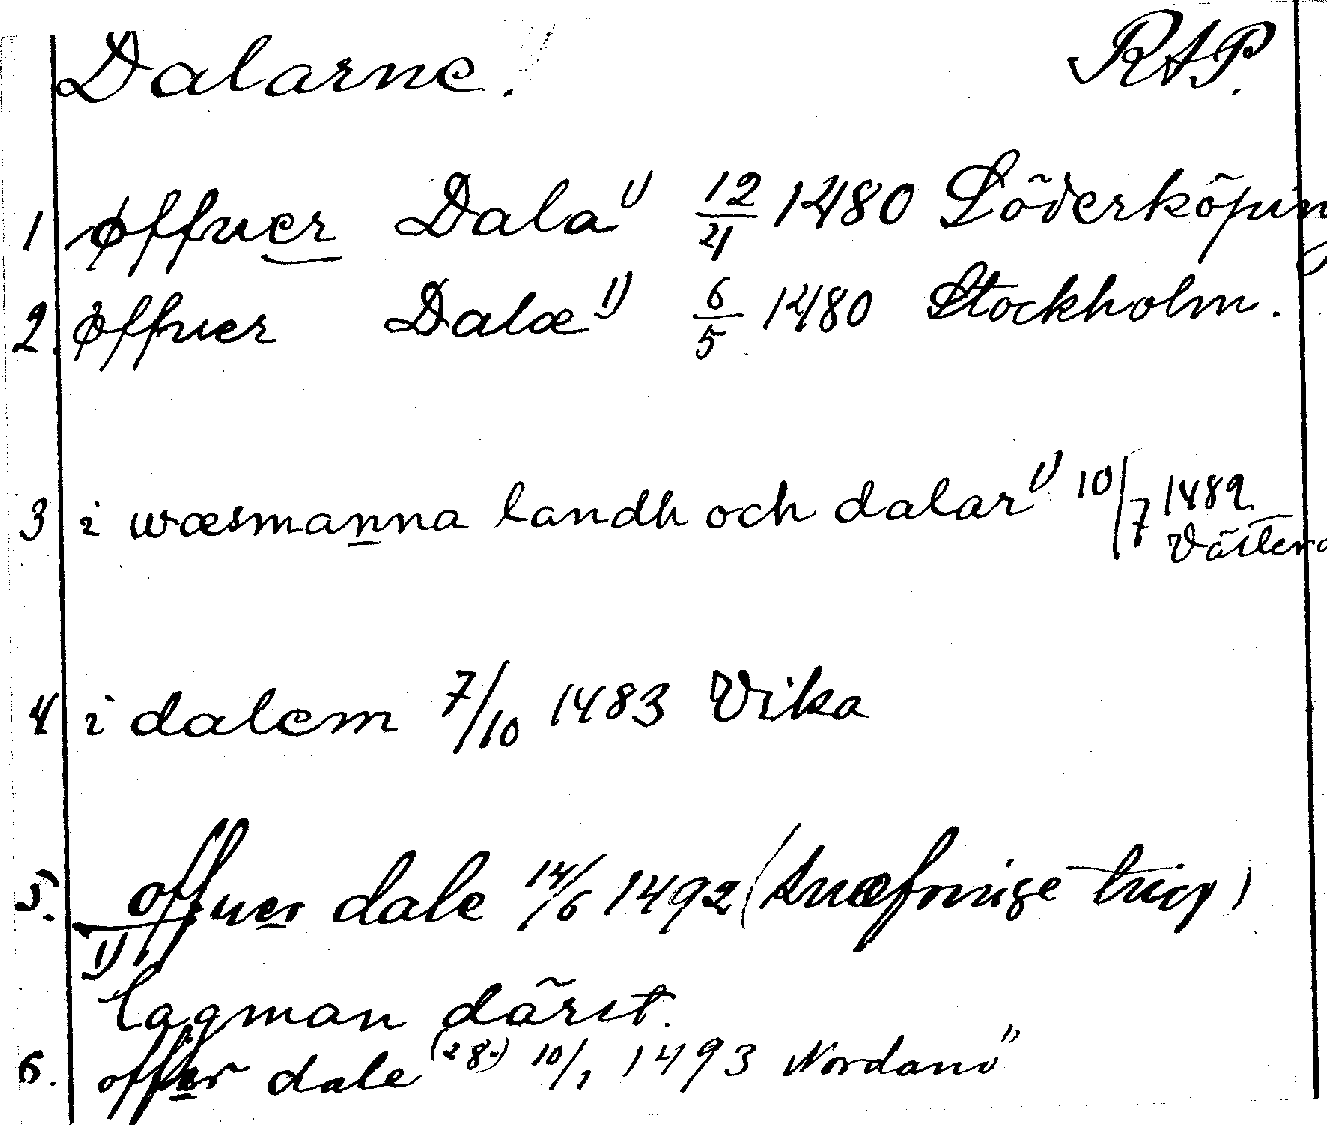 Dalarne. RAP.
1 øffuer Dala 1) 12/4 1480 Söderköping
2. øffuer Dalæ 1) 6/5 1480 Stockholm.
3 i wæsmanna landh och dalar 1) 10/7 1482
Västerå
4 i dalem 7/10 1483 Vika
5. offuer dale 14/6 1492 (knæfninge ting)
1)
lagman därst.
6. offuer dale (28.) 10/1 1493 Nordanö"